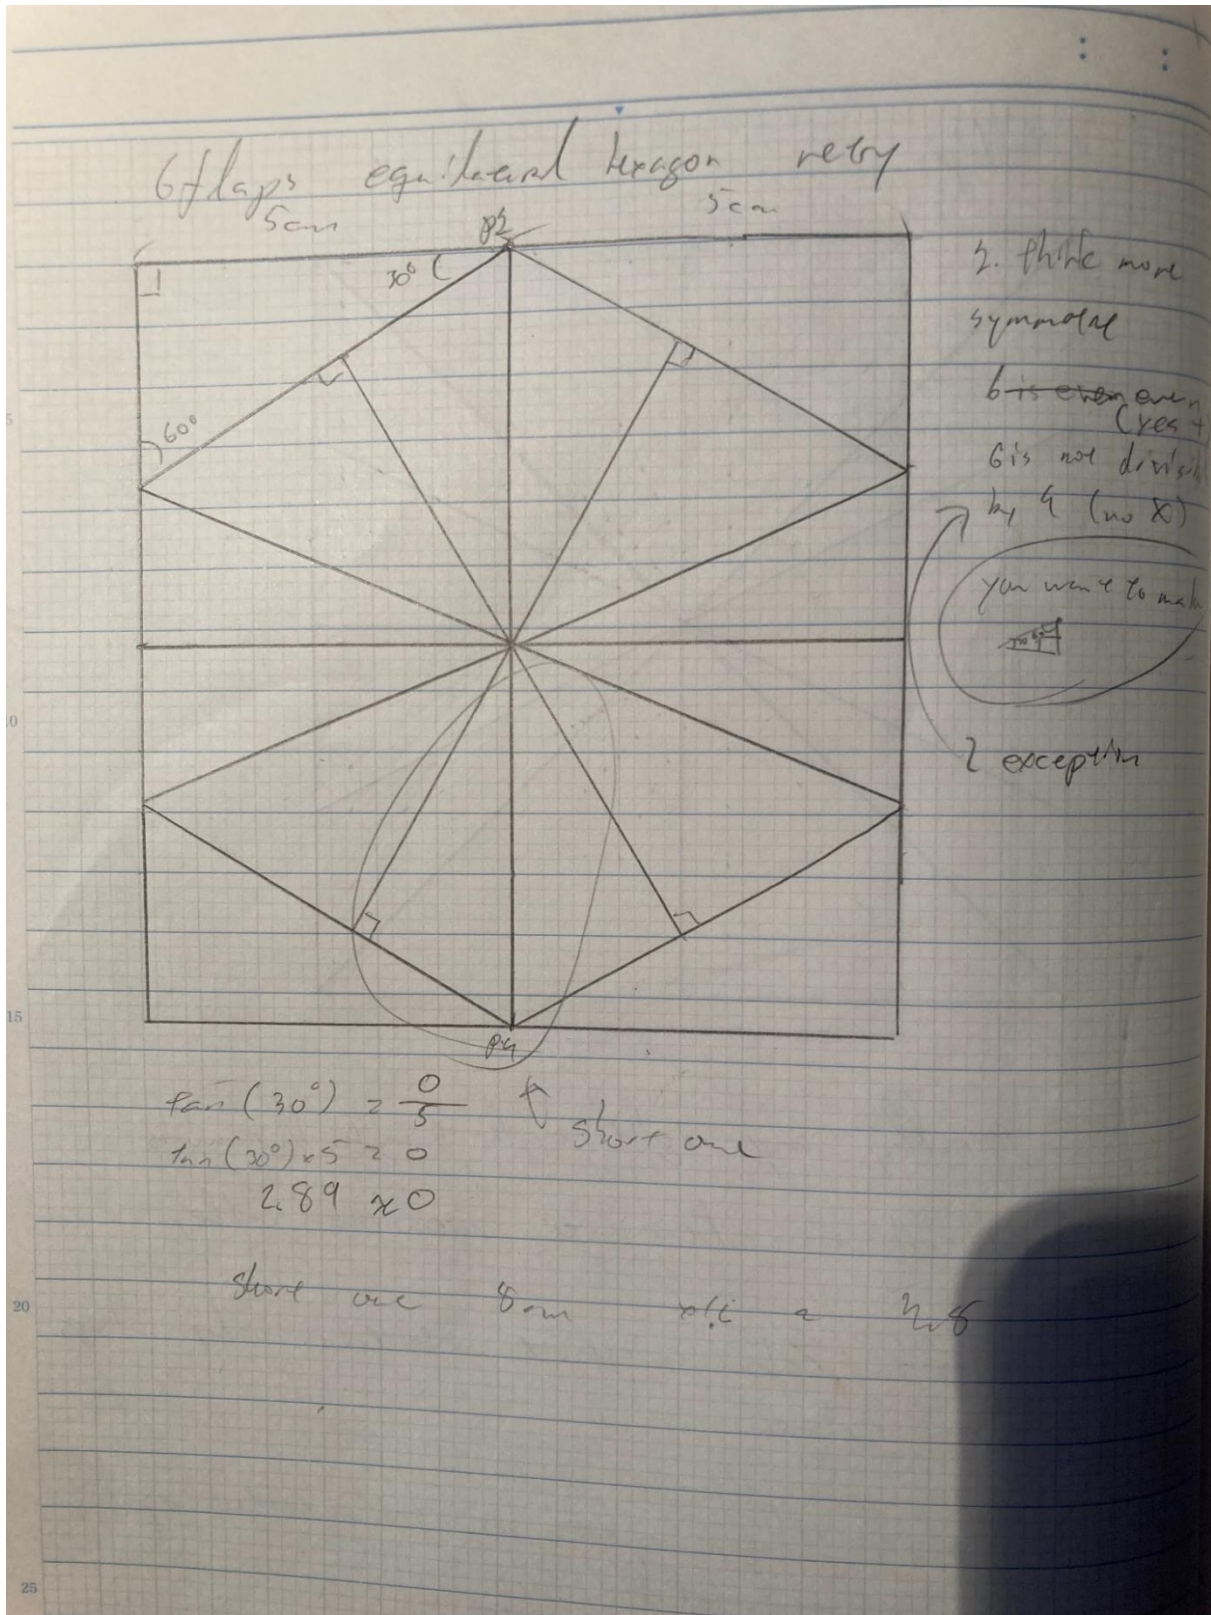 6 flaps equilateral hexagon retry
5cm
5cm
P2
30°
60°
2. think more
symmetre
6 is even even
(yes +
6 is not divisi
by 4 (no X)
you want to mak
2 exception
P4
tan (30°) = O/5
short one
tan (30°) x 5 = O
2.89 ≈ O
short one
5
10
15
20
25